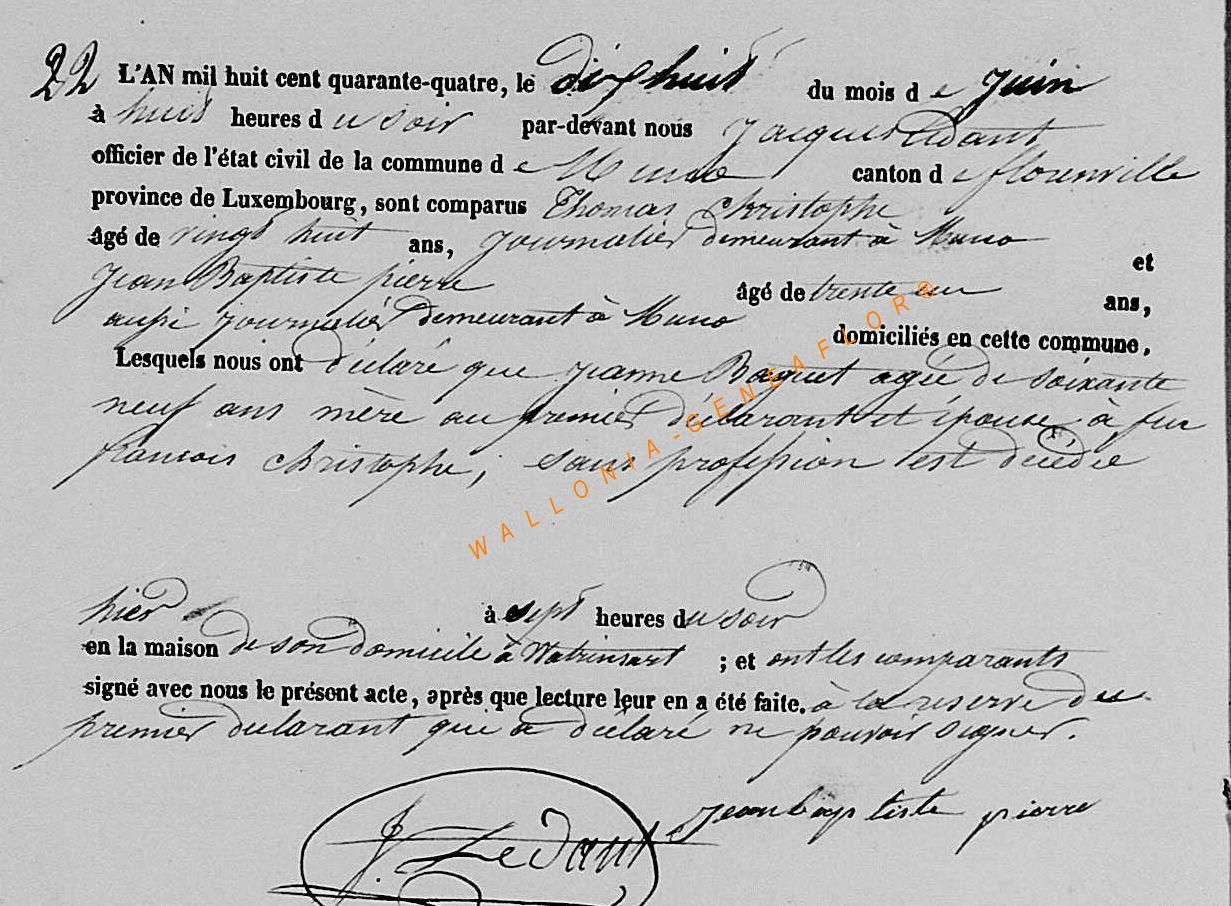 22 L'AN mil huit cent quarante-quatre, le dix huit du mois de Juin
à huit heures du soir par-devant nous Jacques Ledant
officier de l'état civil de la commune de Muno canton de florenville
province de Luxembourg, sont comparus Thomas Christophe
âgé de vingt huit ans, journalier demeurant à Muno
et
Jean Baptiste pierre âgé de trente un ans,
aussi journalier demeurant à Muno domiciliés en cette commune.
Lesquels nous ont déclaré que Jeanne agée de soixante
neuf ans mère au premier déclarant et épouse à feu
francois christophe, sans profession est decedée
hier à sept heures du soir
en la maison de son domicile à Watrinsart ; et ont les comparants
signé avec nous le présent acte, après que lecture leur en a été faite. à la reserve du
premier declarant qui a déclaré ne pouvoir signer.
Jean baptiste pierre
J. Ledant
WALLONIA-GENEAFLOR®